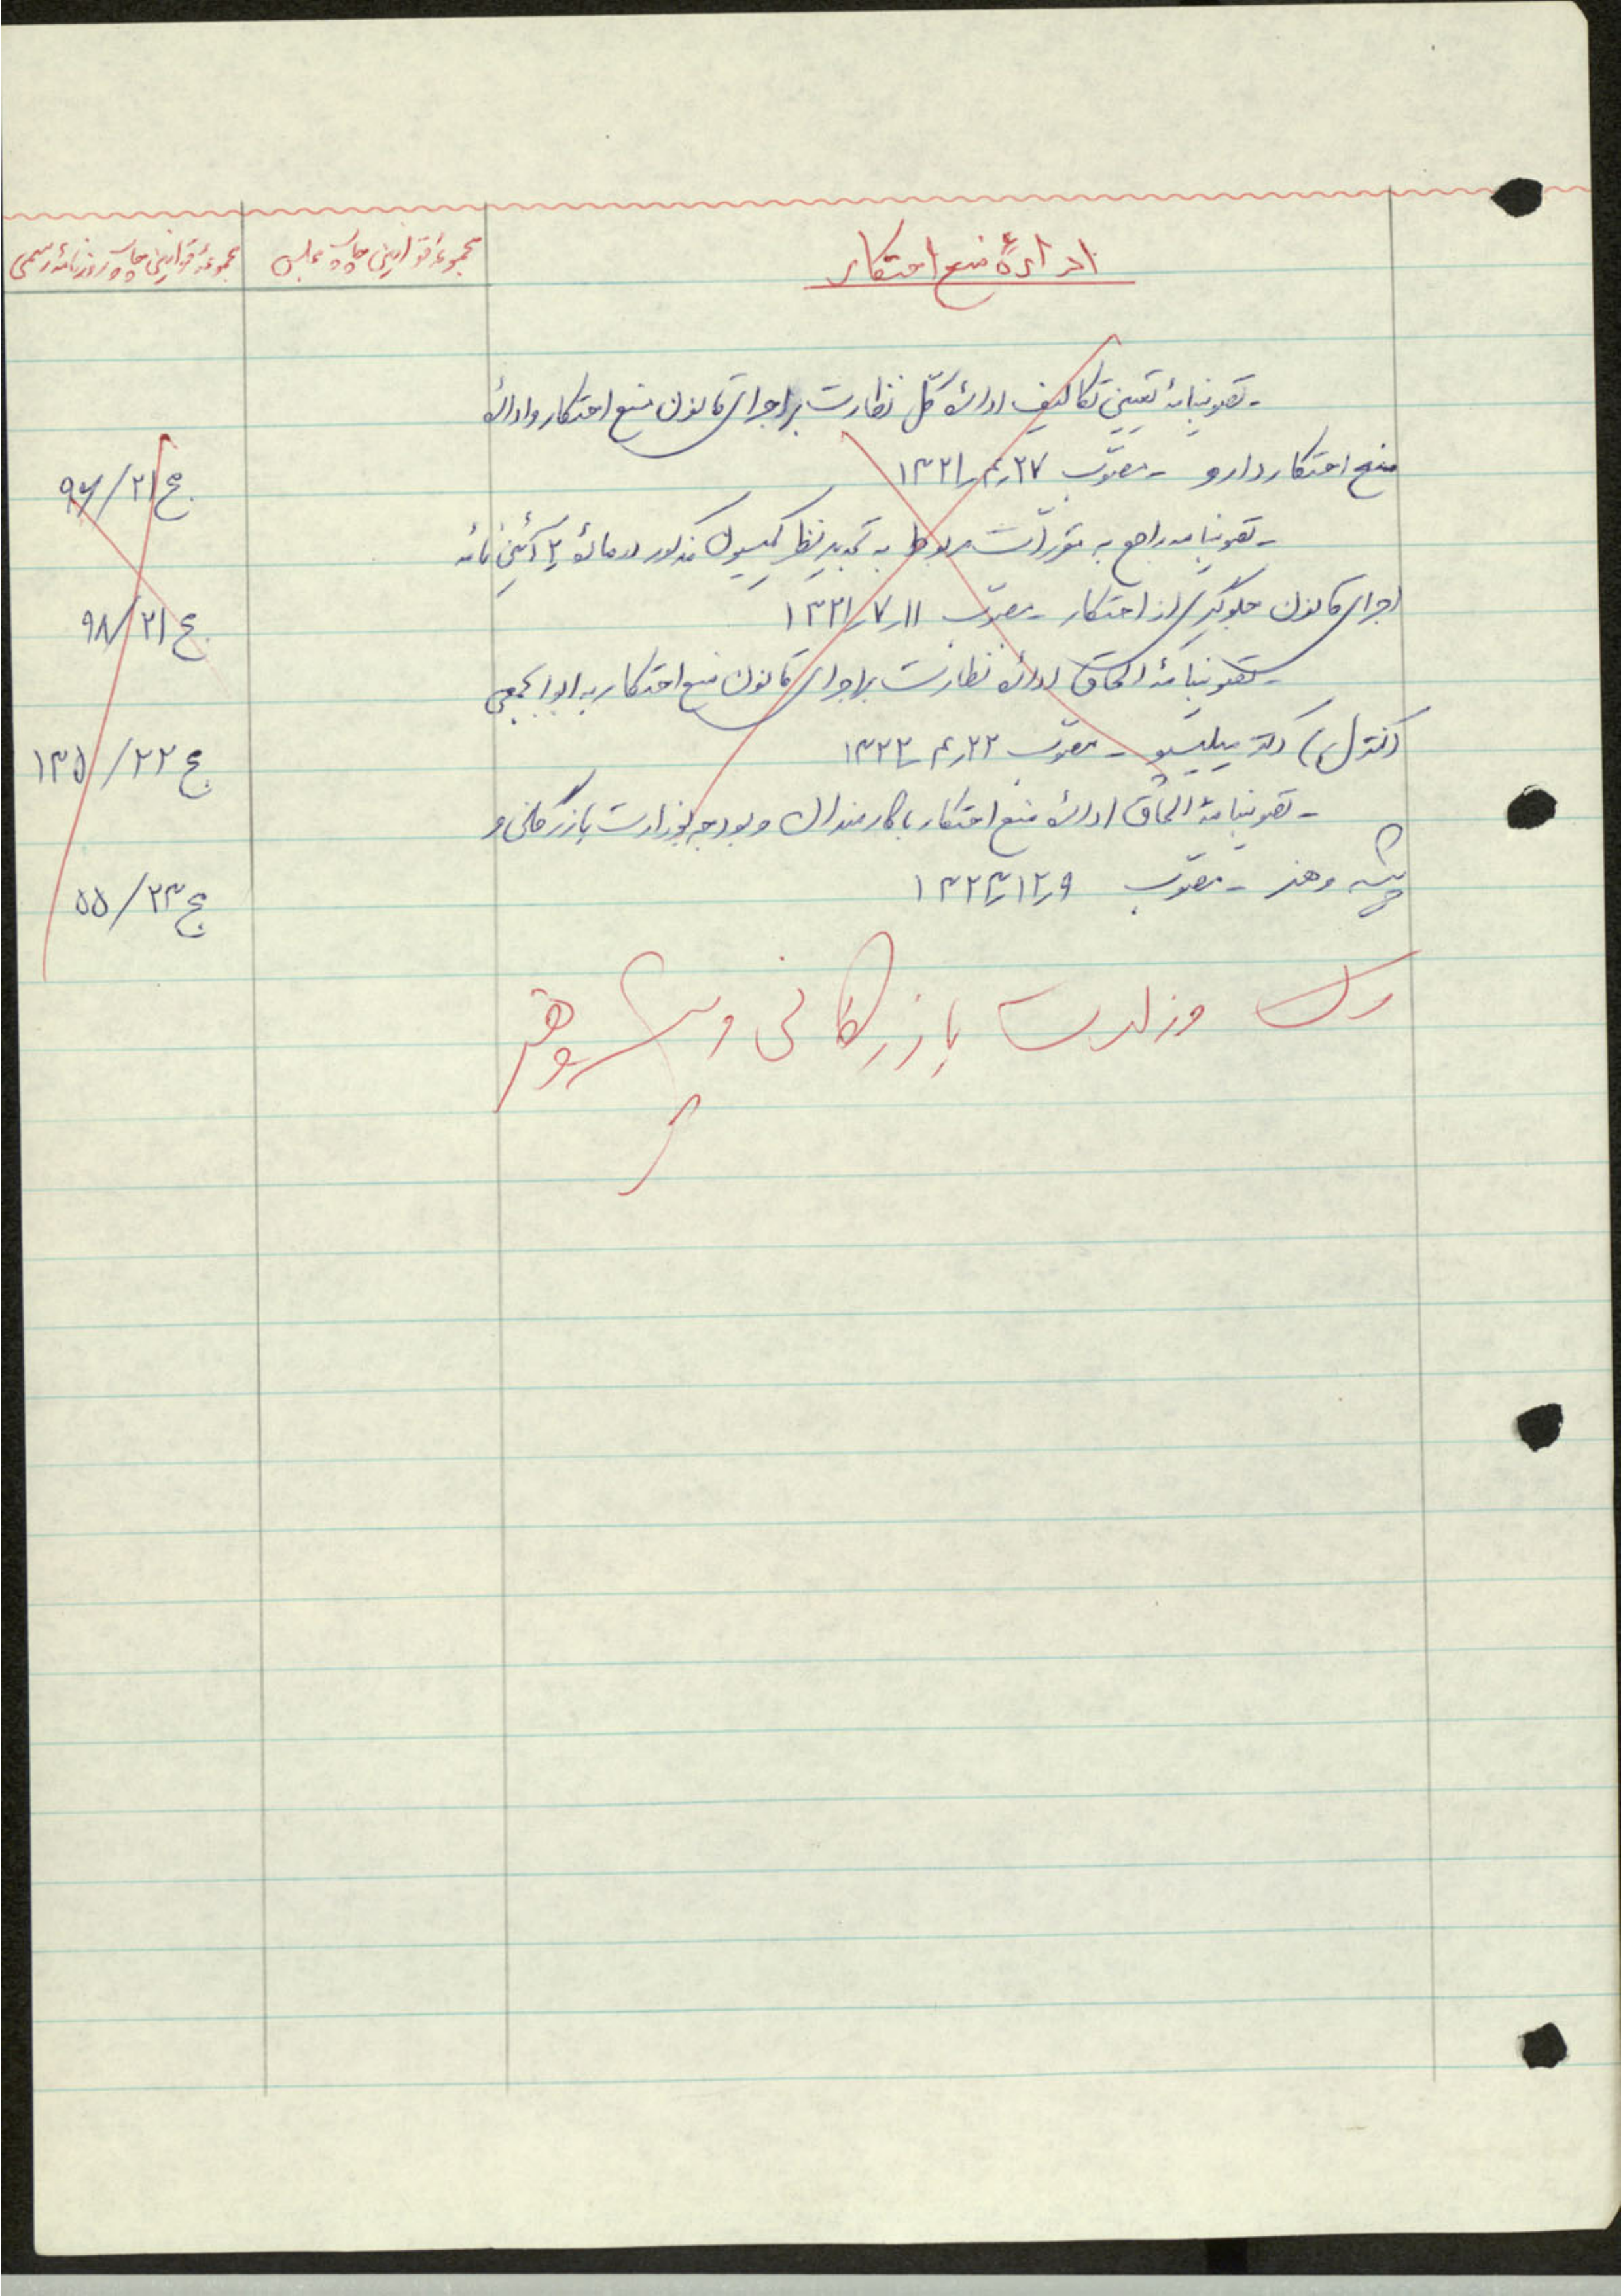 ادارهٔ منع احتکار
مجموعهٔ قوانین چاپ مجلس
مجموعهٔ قوانین چاپ روزنامهٔ رسمی
- تصویبنامهٔ تعیین تکالیف ادارهٔ کلّ نظارت بر اجرای قانون منع احتکار و ادارهٔ
منع احتکار دارو - مصوّب ۲۷ر۴ر۱۳۲۱
ج ۲۱/۹۶
- تصویبنامه راجع به مقررّات مربوط به تجدید نظر کمیسیون مذکور در مادهٔ ۲ آئین نامهٔ
اجرای قانون جلوگیری از احتکار - مصوّب ۱۱ر۷ر۱۳۲۱
ج ۲۱/۹۸
- تصویبنامهٔ الحاق ادارهٔ نظارت بر اجرای قانون منع احتکار به ابوابجمعی
(کنترل) دکتر میلیسپو - مصوّب ۲۲ر۴ر۱۳۲۲
ج ۲۲/۱۳۵
- تصویبنامهٔ الحاق ادارهٔ منع احتکار با کارمندان و بودجه بوزارت بازرگانی و
پیشه و هنر - مصوّب ۹ر۱۲ر۱۳۲۳
ج ۲۳/۵۵
رک وزارت بازرگانی و پیشه و هنر